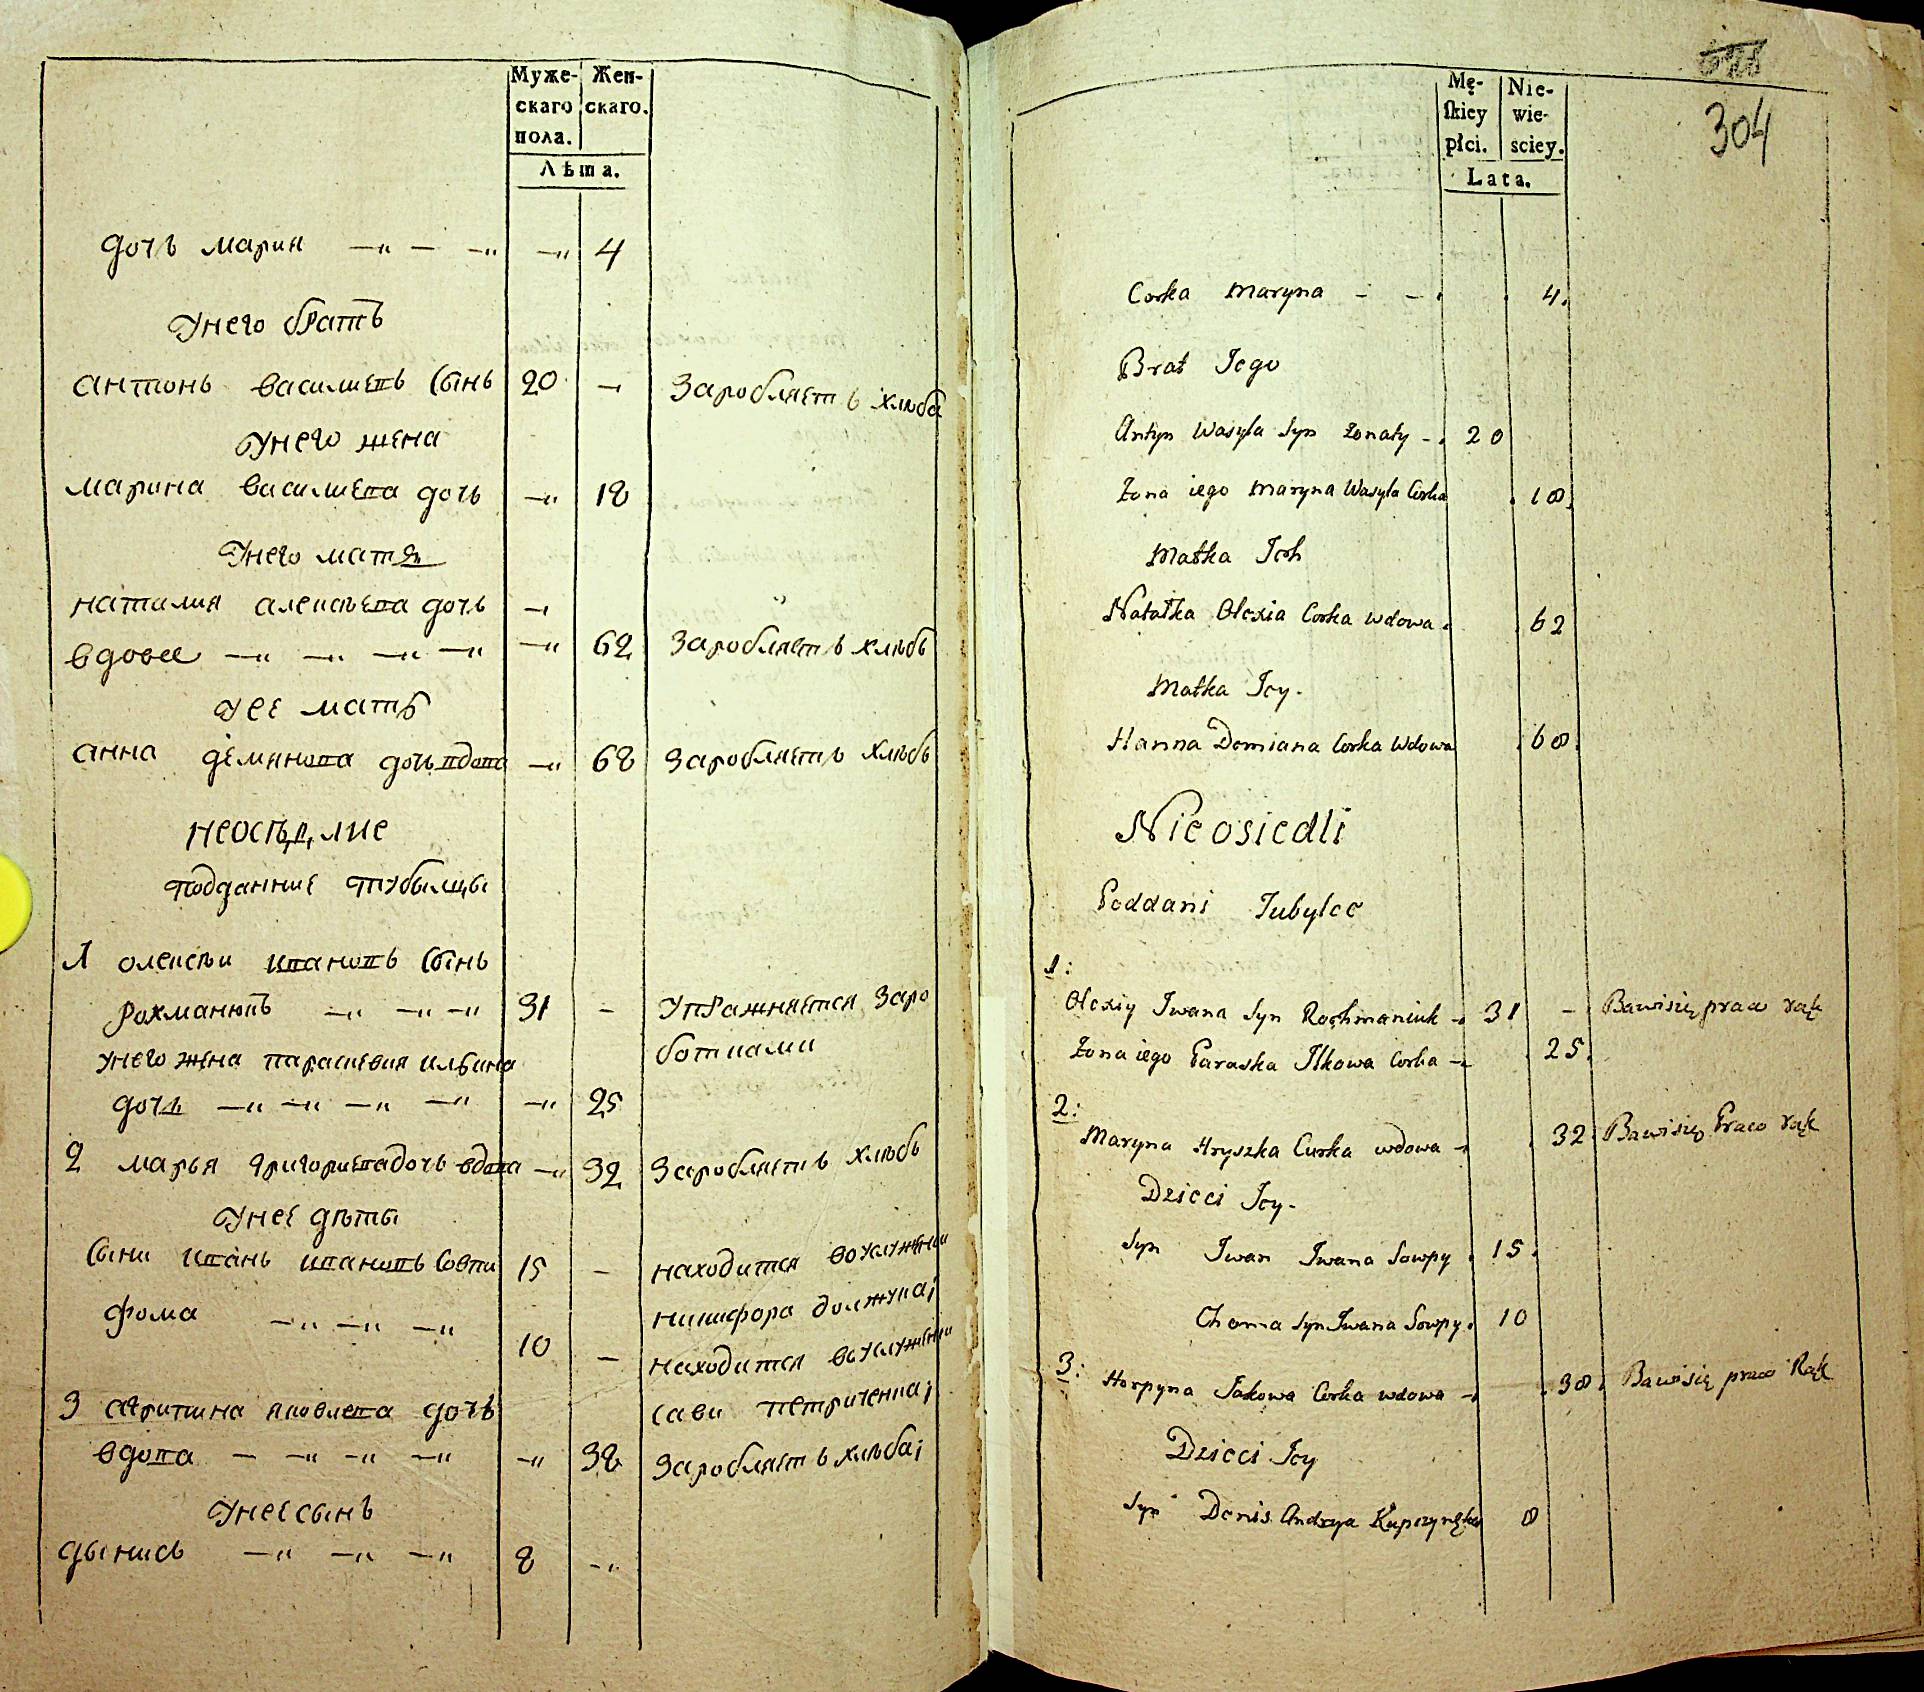 Муже- Жен-
скаго скаго.
пола.
Лѣта.
дочь мария —„ — —„ —„ 4
унего братъ
антонь василиевь сынь 20 — Заробляеть хлѣба
унего жена
марина василиева дочь —„ 18
унего матъ
наталия алексѣева дочь —„
вдовее —„ —„ —„ —„ —„ 62 Заробляеть хлѣбь
у ее мать
анна демянова дочь вдова —„ 68 Заробляеть хлѣбь
неосѣдлие
подданние тубылцы
1 олексѣи ивановь сынь
рохманюкъ —„ —„ —„ 31 — упражняется Заро
унего жена параскевия ильина ботками
дочь —„ —„ —„ —„ —„ 25
2 марья григориева дочь вдова —„ 32 Заробляеть хлѣбь
унее дѣты
сыни ивань ивановь совпи 15 — находится воуслужении
фома —„ —„ —„ никифора должука;
10 — находится воуслужении
сави петриченка;
3 агрипина яковлева дочь
вдова — —„ —„ —„ —„ 38 Заробляеть хлѣба;
унее сынъ
дынись —„ —„ —„ 8 —„
304
Mę- Nie-
skiey wie-
płci. sciey.
Lata.
Corka Maryna - - 4.
Brat Jego
Antyn Wasyla Syn Żonaty - 20
Żona iego Maryna Wasyla Corka 18.
Matka Ich
Natalka Olexia Corka wdowa. 62
Matka Jey.
Hanna Demiana Corka Wdowa 68.
Nieosiedli
Poddani Tubylce
1:
Olexiy Iwana Syn Rochmaniuk - 31 - Bawi się prac rąk
Żona iego Paraska Ilkowa Corka - 25.
2:
Maryna Hryszka Curka wdowa - 32 Bawi się Prac rąk
Dzieci Jey.
Syn Iwan Iwana Sowpy . 15.
Choma Syn Iwana Sowpy. 10
3:
Horpyna Jakowa Corka wdowa - 38. Bawi się prac Rąk
Dzieci Jey
Syn Denis Andrya 8